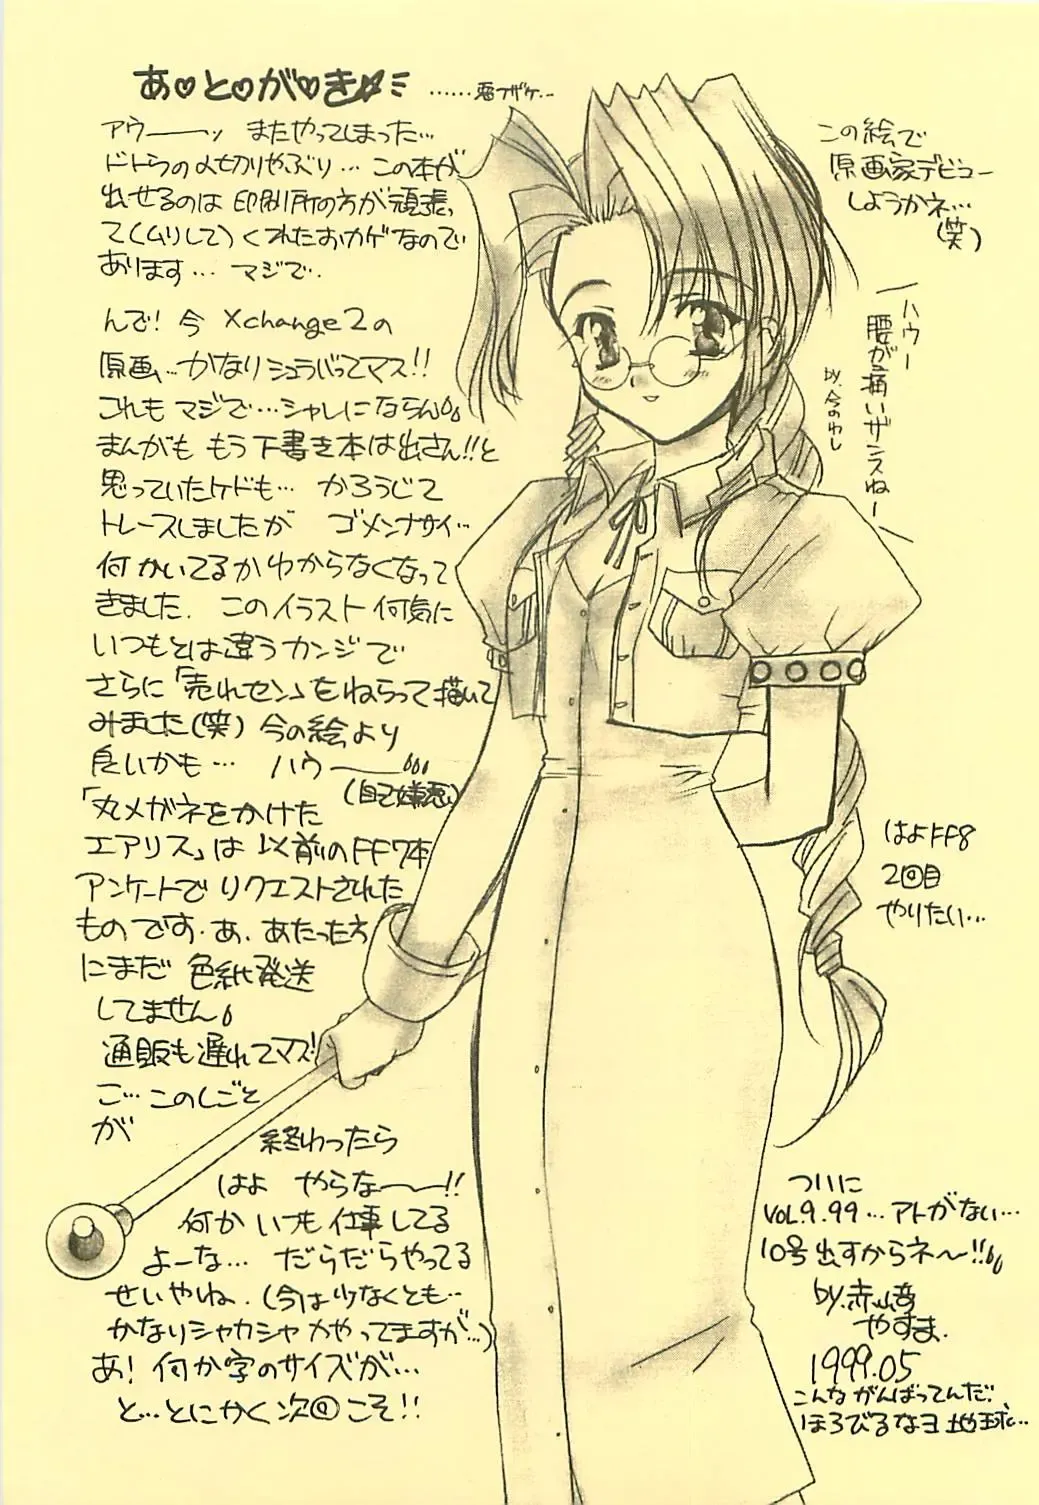 あ♡と♡が♡き
……悪フザケ…
アウーーッ またやってしまった…
ドトウの〆切りやぶり… この本が
出せるのは 印刷所の方が頑張っ
て(ムリして)くれたおカゲなので
あります… マジで.
んで! 今 Xchange2の
原画…かなりシュラバってマス!!
これも マジで…シャレにならん
まんがも もう下書き本は出さん!!と
思っていたケドも… かろうじて
トレースしましたが ゴメンナサイ…
何かいてるかわからなくなって
きました. このイラスト 何気に
いつもとは違うカンジで
さらに「売れセン」をねらって描いて
みました(笑) 今の絵より
良いかも… ハウーー
(自己嫌悪)
「丸メガネをかけた
エアリス」は 以前のFF7本
アンケートでリクエストされた
ものです. あ. あたった方
にまだ 色紙発送
してません
通販も遅れてマス!
ご…このしごと
が
終わったら
はよ やらなーー!!
何か いつも仕事してる
よーな… だらだらやってる
せいやね. (今は少なくとも…
かなりシャカシャカやってますが…)
あ! 何か字のサイズが…
と…とにかく次回こそ!!
この絵で
原画家デビュー
しようかネ…
(笑)
ハウー
腰が痛いザンスねー
by.今のわし
はよFF8
2回目
やりたい…
ついに
VOL.9.99…アトがない…
10号出すからネ〜!!
by.赤山彦
やすま.
1999.05
こんながんばってんだ!
ほろびるなヨ 地球…